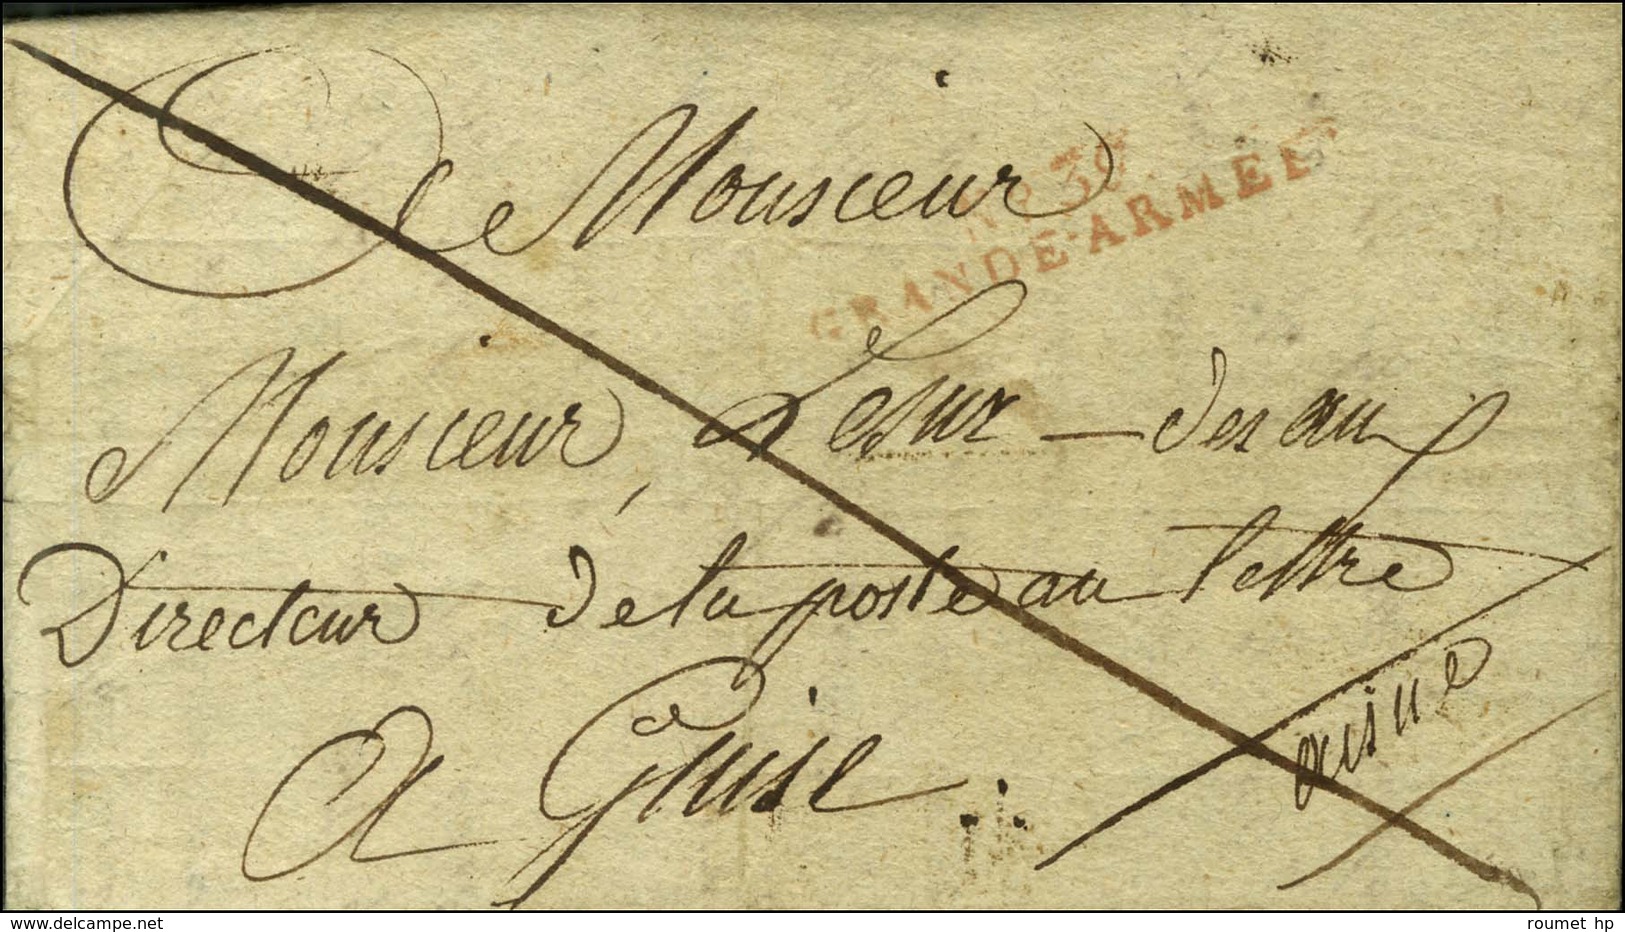 A Monsieur
No 39
GRANDE-ARMÉE
Monsieur, Lesur — desaux
Directeur de la poste au lettre
A Guise
aisne
delcampe.net
roumet hp